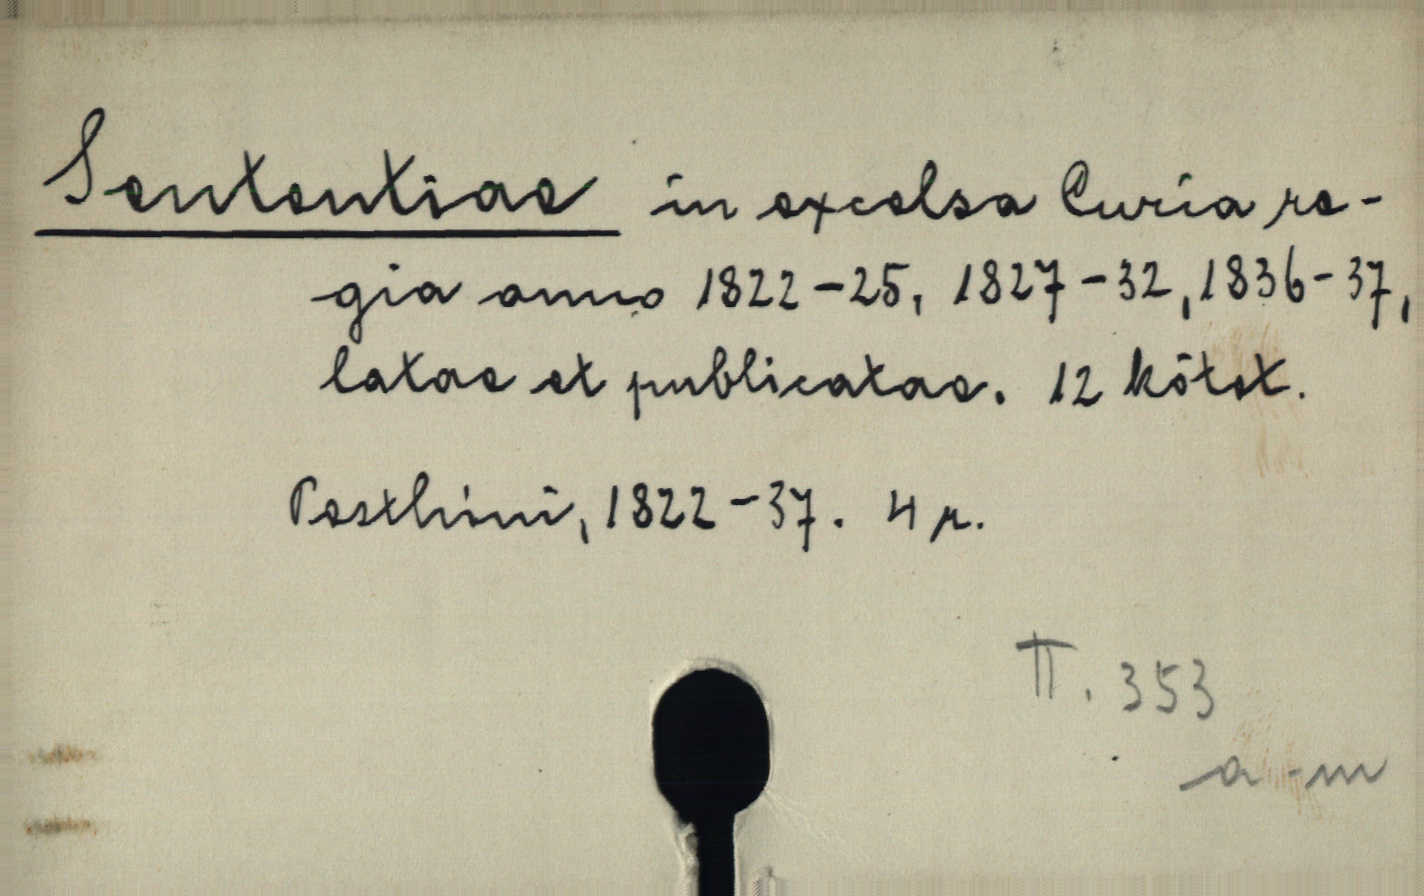 Sententiae in excelsa Curia re-
gia anno 1822-25, 1827-32, 1836-37,
latae et publicatae. 12 kötet.
Pesthini, 1822-37. 4 r.
II. 353
a-m